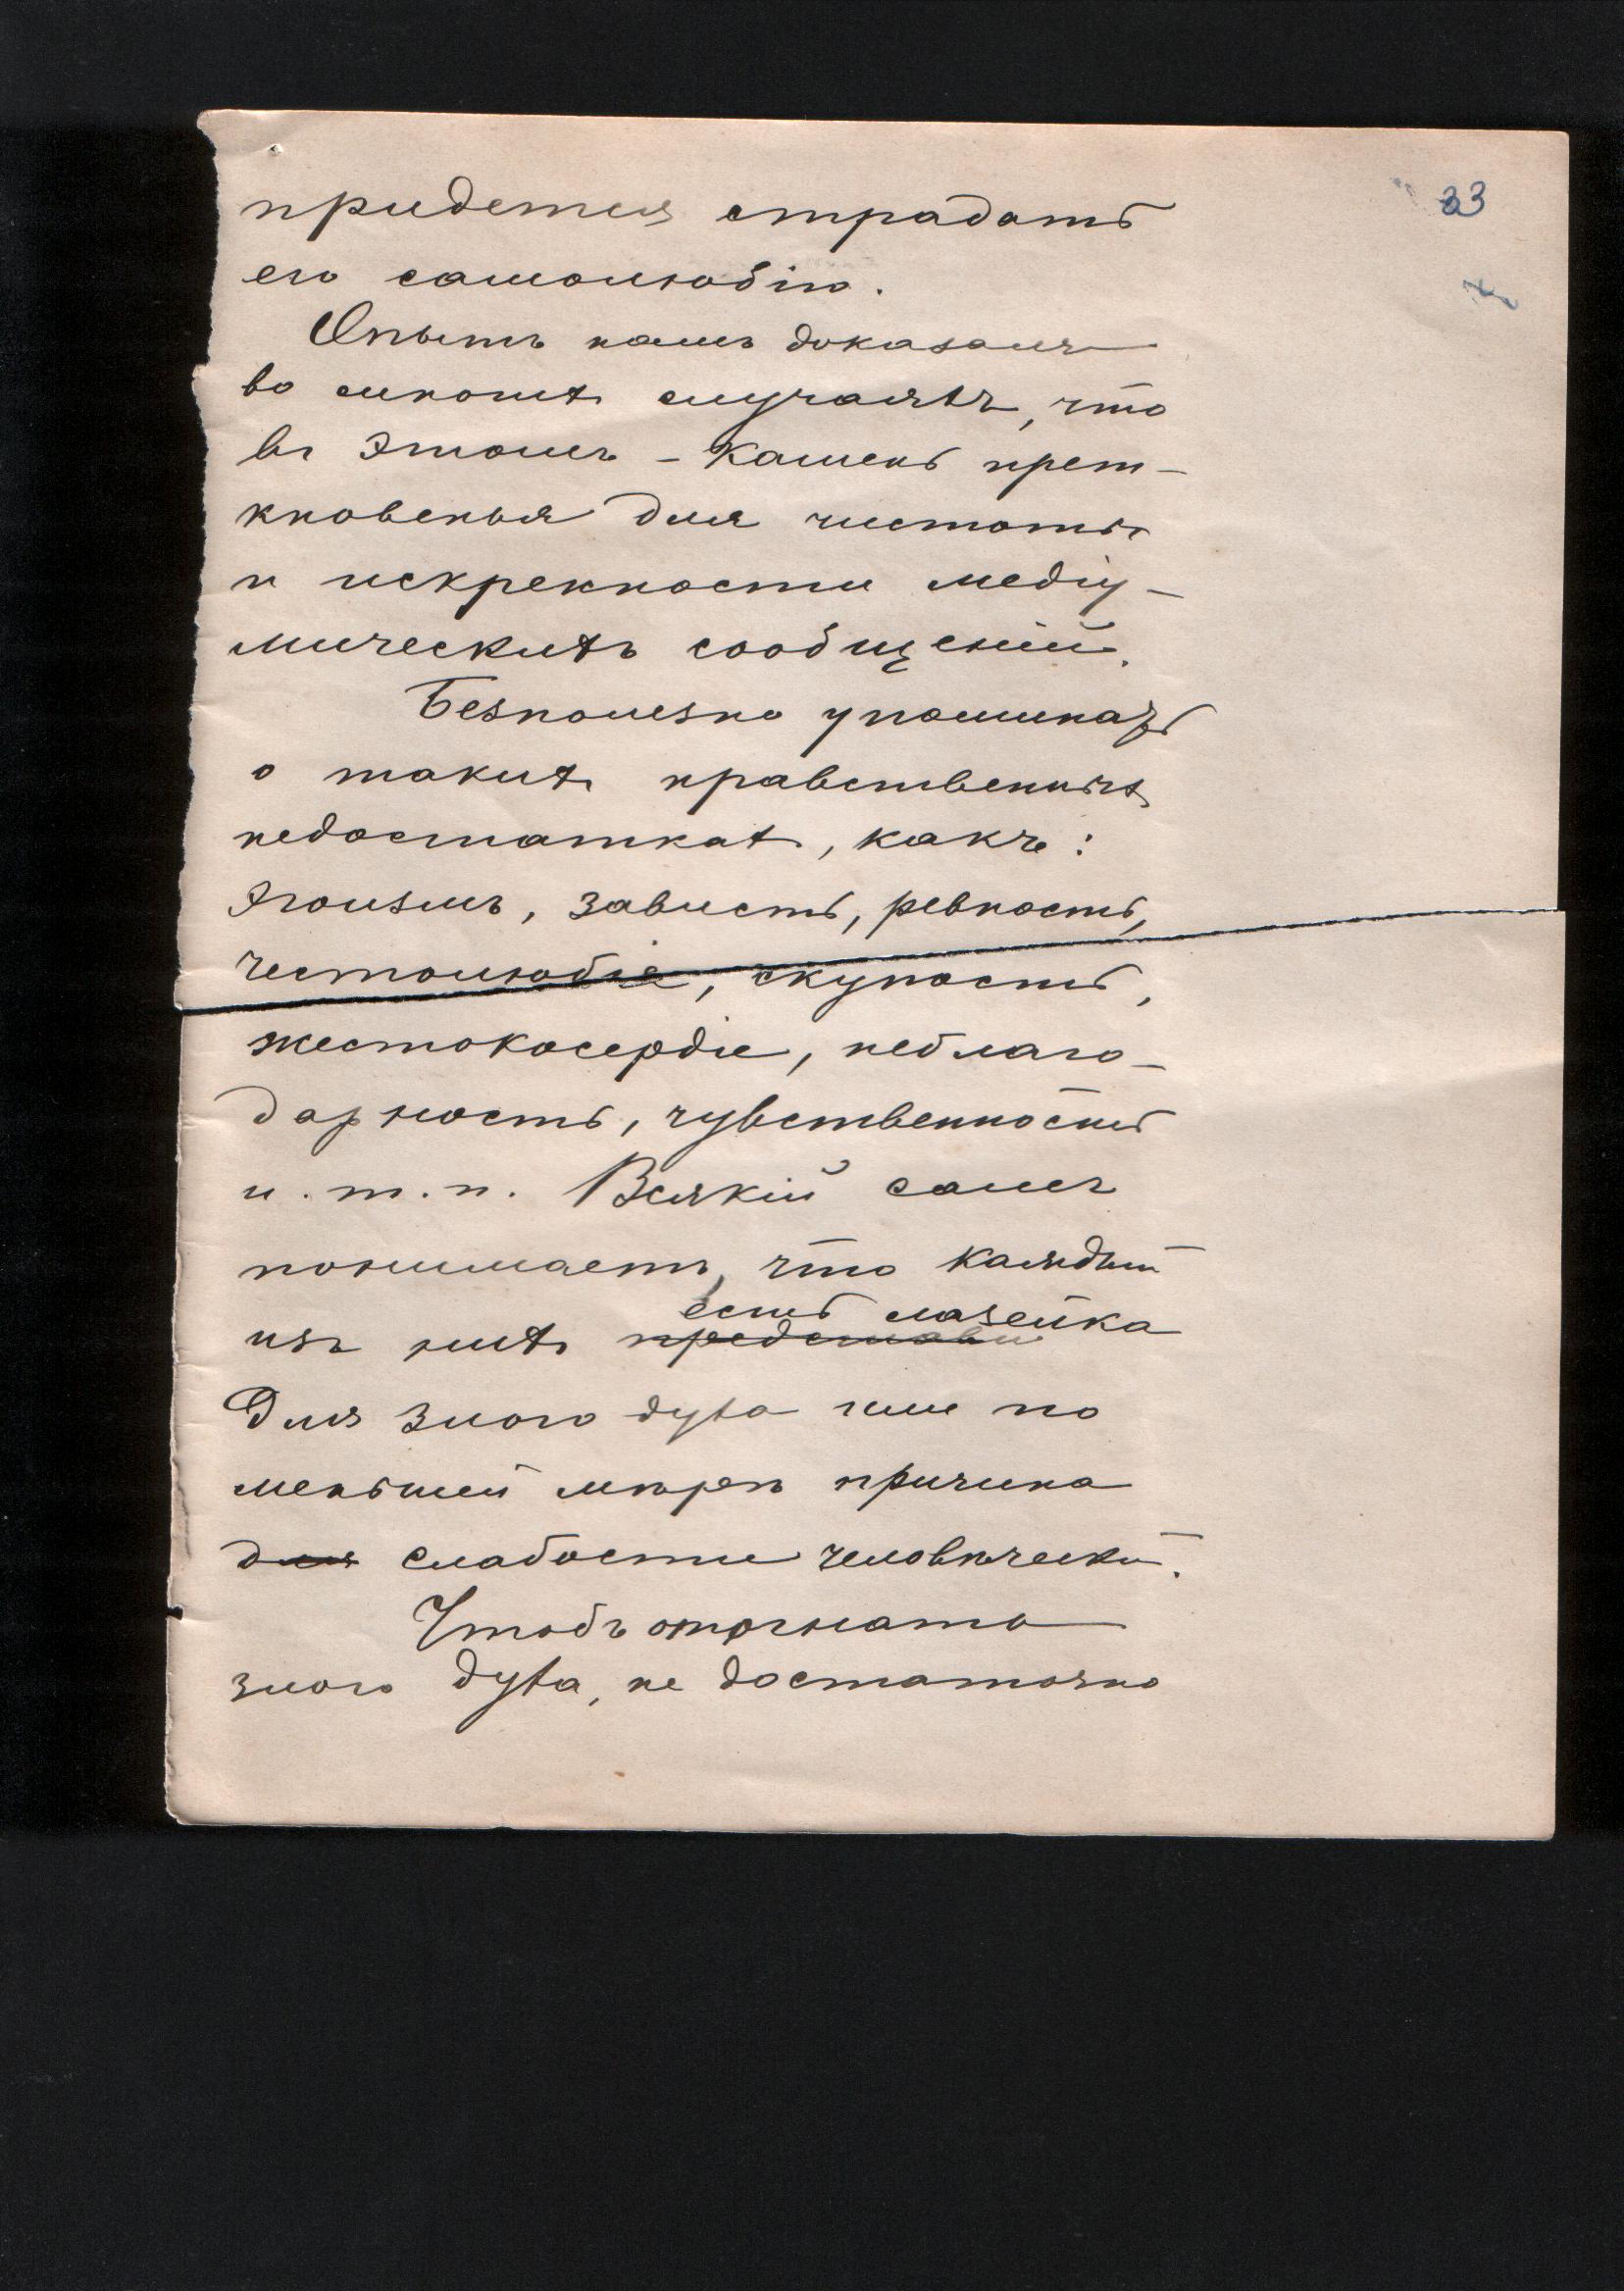 33
придется страдать
его самолюбію.
Опытъ намъ доказалъ
во многихъ случаяхъ, что
въ этомъ – камень прет-
кновенья для чистоты
и искренности медіу-
мическихъ сообщеній.
Безполезно упоминать
о такихъ нравственныхъ
недостаткахъ, какъ:
эгоизмъ, зависть, ревность,
честолюбіе, скупость,
жестокосердіе, неблаго-
дарность, чувственность
и. т. п. Всякій самъ
понимаетъ, что каждый
есть лазейка
изъ нихъ представл
для злого духа или по
меньшей мѣрѣ причина
для слабости человѣческой.
Чтобъ отогнать
злого духа, не достаточно